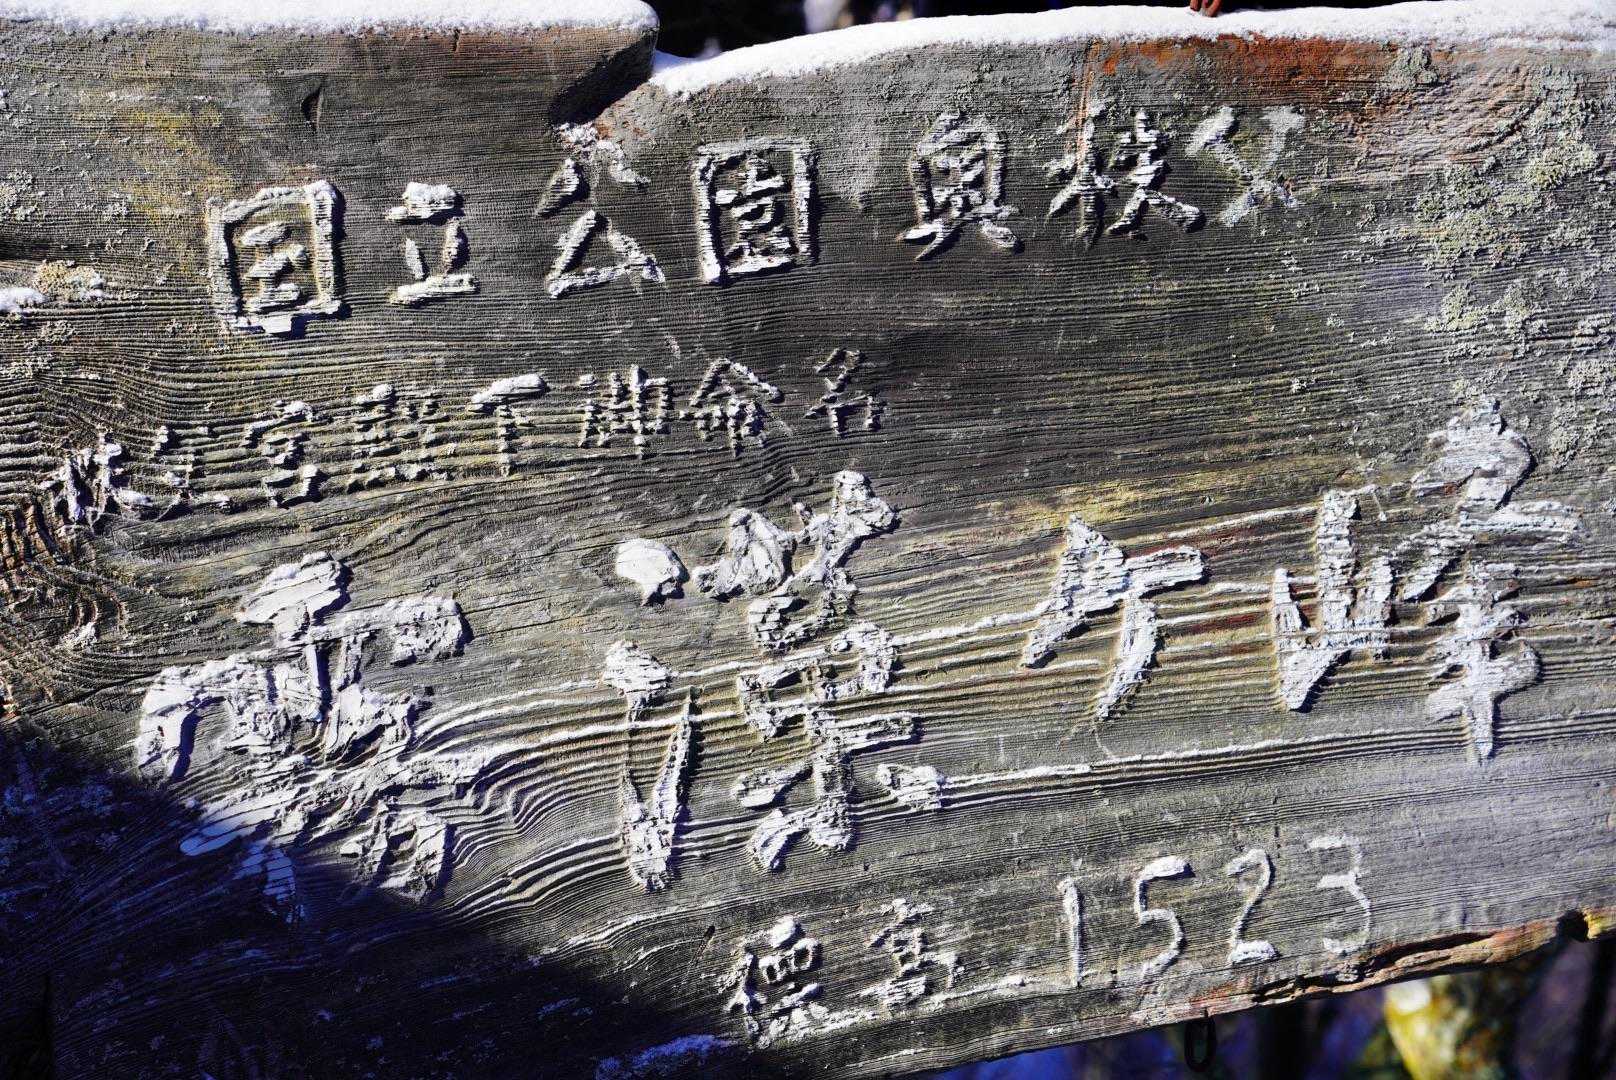 国立公園奥秩父
秩父宮殿下御命名
霧藻ヶ峰
標高1523